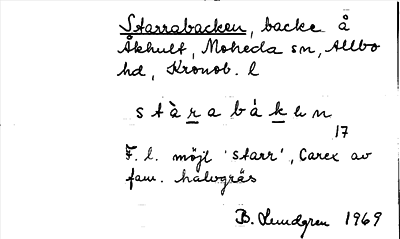 Starrabacken, backe å
Åkhult, Moheda sn, Allbo
hd, Kronob. l
stàrabáken
17
F. l. möjl 'starr', Carex av
fam. halvgräs
B. Lundgren 1969